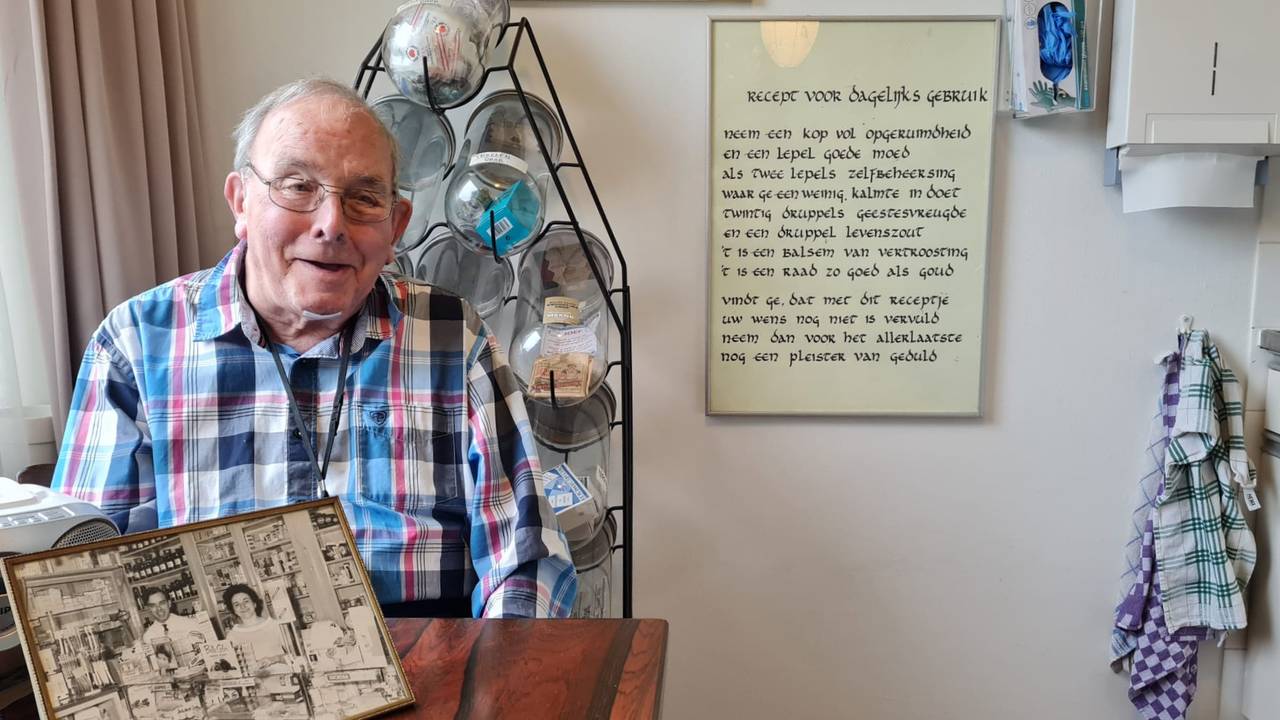 RECEPT VOOR DAGELIJKS GEBRUIK
NEEM EEN KOP VOL OPGERUIMDHEID
EN EEN LEPEL GOEDE MOED
ALS TWEE LEPELS ZELFBEHEERSING
WAAR GE EEN WEINIG, KALMTE IN DOET
TWINTIG DRUPPELS GEESTESVREUGDE
EN EEN DRUPPEL LEVENSZOUT
'T IS EEN BALSEM VAN VERTROOSTING
'T IS EEN RAAD ZO GOED ALS GOUD
VINDT GE, DAT MET DIT RECEPTJE
UW WENS NOG NIET IS VERVULD
NEEM DAN VOOR HET ALLERLAATSTE
NOG EEN PLEISTER VAN GEDULD